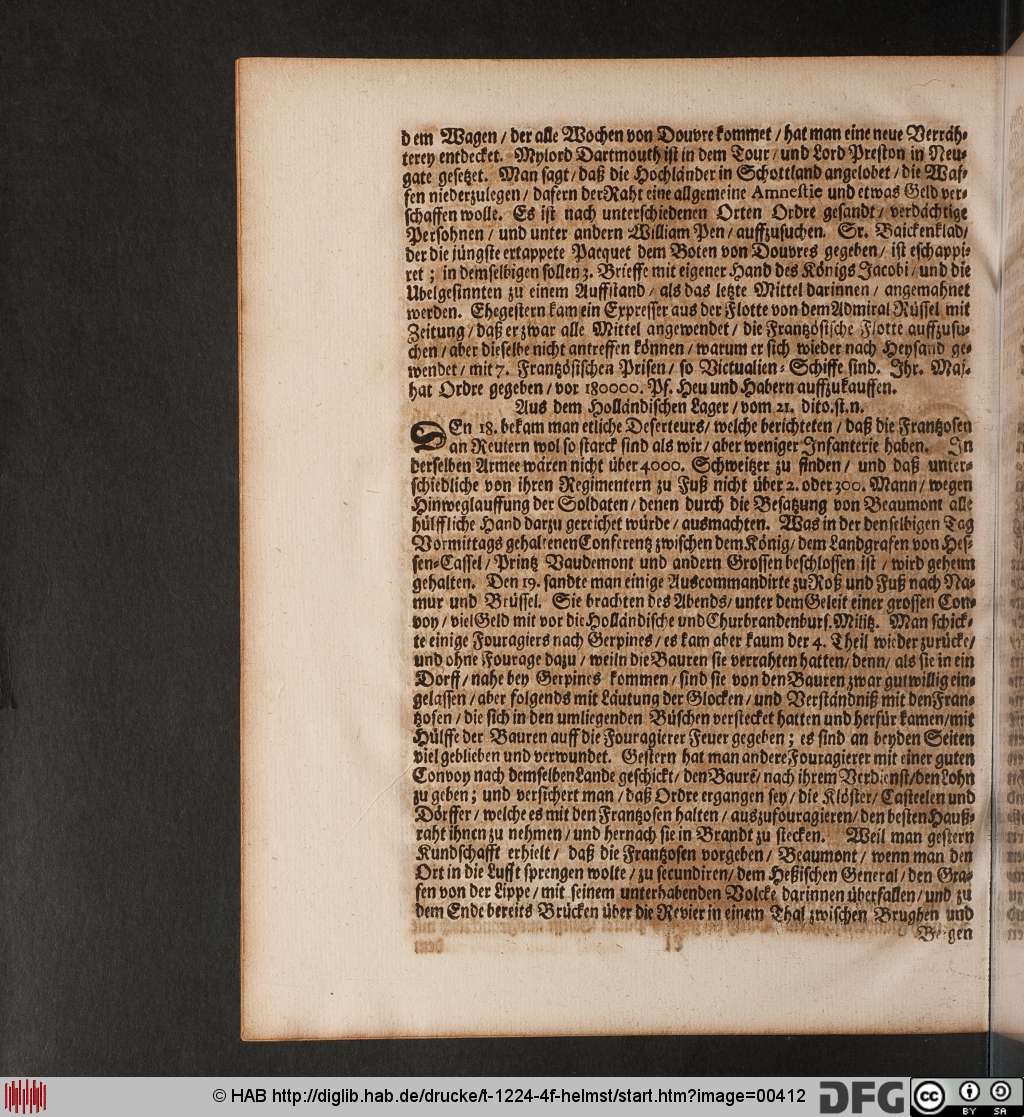 dem Wagen / der alle Wochen von Douvre kommet / hat man eine neue Verräh-
terey entdecket. Mylord Dartmouth ist in dem Tour / und Lord Preston in Neu-
gate gesetzet. Man sagt / daß die Hochländer in Schottland angelobet / die Waf-
fen niederzulegen / dafern der Raht eine allgemeine Amnestie und etwas Geld ver-
schaffen wolle. Es ist nach unterschiedenen Orten Ordre gesandt / verdächtige
Persohnen / und unter andern William Pen / auffzusuchen. Sr. Baickenklad /
der die jüngste ertappete Pacquet dem Boten von Douvres gegeben / ist eschappi-
ret ; in demselbigen sollen 3. Brieffe mit eigener Hand des Königs Jacobi / und die
Ubelgesinnten zu einem Auffstand / als das letzte Mittel darinnen / angemahnet
werden. Ehegestern kam ein Expresser aus der Flotte von dem Admiral Rüssel mit
Zeitung / daß er zwar alle Mittel angewendet / die Frantzösische Flotte auffzusu-
chen / aber dieselbe nicht antreffen können / warum er sich wieder nach Heysand ge-
wendet / mit 7. Frantzösischen Prisen / so Victualien-Schiffe sind. Ihr. Maj.
hat Ordre gegeben / vor 180000. Pf. Heu und Habern auffzukauffen.
Aus dem Holländischen Lager / vom 21. dito. st. n.
DEn 18. bekam man etliche Deserteurs / welche berichteten / daß die Frantzosen
an Reutern wol so starck sind als wir / aber weniger Infanterie haben. In
derselben Armee wären nicht über 4000. Schweitzer zu finden / und daß unter-
schiedliche von ihren Regimentern zu Fuß nicht über 2. oder 300. Mann / wegen
Hinweglauffung der Soldaten / denen durch die Besatzung von Beaumont alle
hülffliche Hand darzu gereichet würde / ausmachten. Was in der denselbigen Tag
Vormittags gehaltenen Conferentz zwischen dem König / dem Landgrafen von Hes-
sen-Cassel / Printz Vaudemont und andern Grossen beschlossen ist / wird geheim
gehalten. Den 19. sandte man einige Auscommandirte zu Roß und Fuß nach Na-
mur und Brüssel. Sie brachten des Abends / unter dem Geleit einer grossen Con-
voy / viel Geld mit vor die Holländische und Churbrandenburs. Militz. Man schick-
te einige Fouragiers nach Gerpines / es kam aber kaum der 4. Theil wieder zurücke /
und ohne Fourage dazu / weiln die Bauren sie verrahten hatten / denn / als sie in ein
Dorff / nahe bey Gerpines kommen / sind sie von den Bauren zwar gutwillig ein-
gelassen / aber folgends mit Läutung der Glocken / und Verständniß mit den Fran-
tzosen / die sich in den umliegenden Büschen verstecket hatten und herfür kamen / mit
Hülffe der Bauren auff die Fouragierer Feuer gegeben ; es sind an beyden Seiten
viel geblieben und verwundet. Gestern hat man andere Fouragierer mit einer guten
Convoy nach demselben Lande geschickt / den Baurẽ / nach ihrem Verdienst / den Lohn
zu geben ; und versichert man / daß Ordre ergangen sey / die Klöster / Casteelen und
Dörffer / welche es mit den Frantzosen halten / auszufouragieren / den besten Hauß-
raht ihnen zu nehmen / und hernach sie in Brandt zu stecken. Weil man gestern
Kundschafft erhielt / daß die Frantzosen vorgeben / Beaumont / wenn man den
Ort in die Lufft sprengen wolte / zu secundiren / dem Heßischen General / den Gra-
fen von der Lippe / mit seinem unterhabenden Volcke darinnen überfallen / und zu
dem Ende bereits Brücken über die Revier in einem Thal zwischen Brughen und
Bergen
© HAB http://diglib.hab.de/drucke/t-1224-4f-helmst/start.htm?image=00412
DFG
cc BY SA